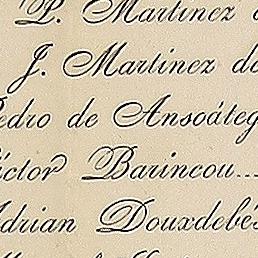 P. Martinez d
J. Martinez do
Pedro de Ansoáteg
Víctor Barincou...
Adrian Douxdebés